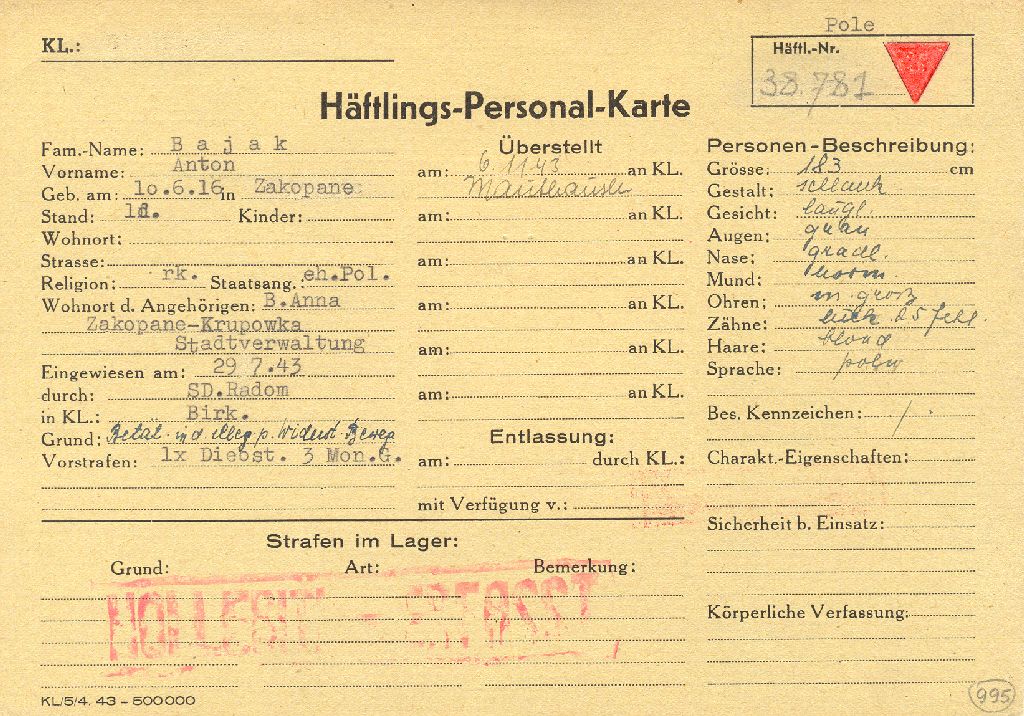 KL.:
Pole
Häftl.-Nr.
38.781
Häftlings-Personal-Karte
Fam.-Name: Bajak
Vorname: Anton
Geb. am: 10.6.16 in Zakopane
Stand: ld. Kinder:
Wohnort:
Strasse:
Religion: rk. Staatsang.: eh.Pol.
Wohnort d. Angehörigen: B.Anna
Zakopane-Krupowka
Stadtverwaltung
Eingewiesen am: 29 7.43
durch: SD.Radom
in KL.: Birk.
Grund: Betät. i. d. illeg. p. Widerst. Beweg
Vorstrafen: 1x Diebst. 3 Mon.G.
Überstellt
am: 6.11.43 an KL.
Mauthausen
am: an KL.
am: an KL.
am: an KL.
am: an KL.
am: an KL.
Entlassung:
am: durch KL.:
mit Verfügung v.:
Personen-Beschreibung:
Grösse: 183 cm
Gestalt: schlank
Gesicht: längl.
Augen: grau
Nase: gradl.
Mund: norm.
Ohren: m. groß
Zähne: 25 fehl.
Haare: blond
Sprache: poln
Bes. Kennzeichen: /.
Charakt.-Eigenschaften:
Sicherheit b. Einsatz:
Körperliche Verfassung:
Strafen im Lager:
Grund: Art: Bemerkung:
HOLLERITH - ERFASST
KL/5/4. 43 - 500000
995